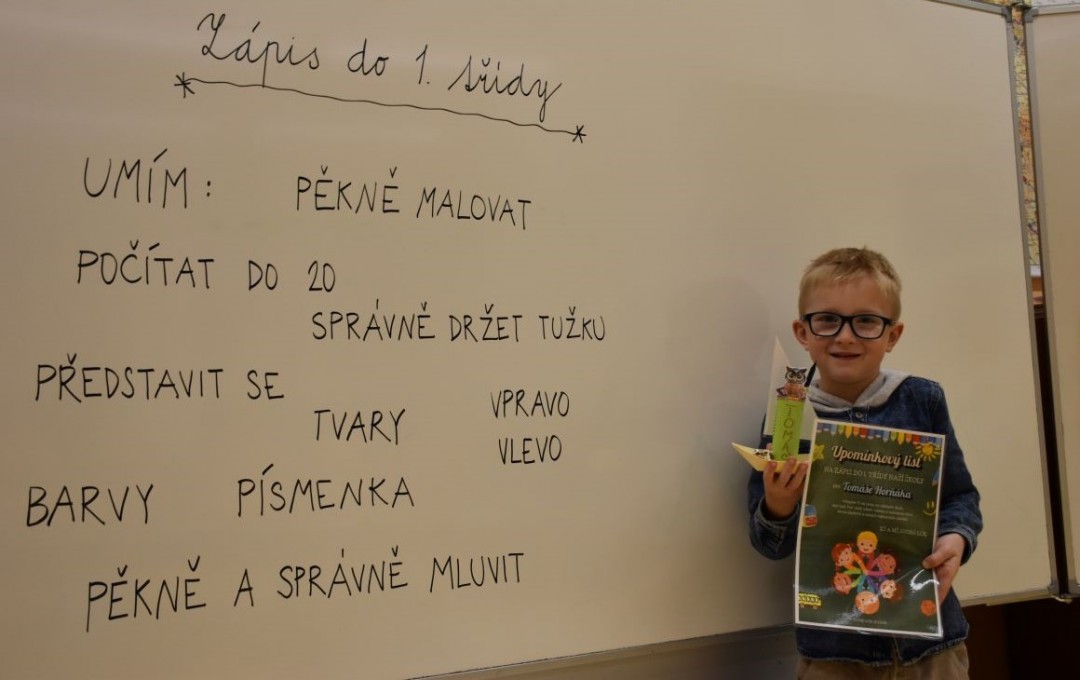 Zápis do 1. třídy
UMÍM: PĚKNĚ MALOVAT
POČÍTAT DO 20
SPRÁVNĚ DRŽET TUŽKU
PŘEDSTAVIT SE
TVARY
VPRAVO
VLEVO
BARVY PÍSMENKA
PĚKNĚ A SPRÁVNĚ MLUVIT
TOMÁŠ
Upomínkový list
NA ZÁPIS DO 1. TŘÍDY NAŠÍ ŠKOLY
pro Tomáše Horňáka